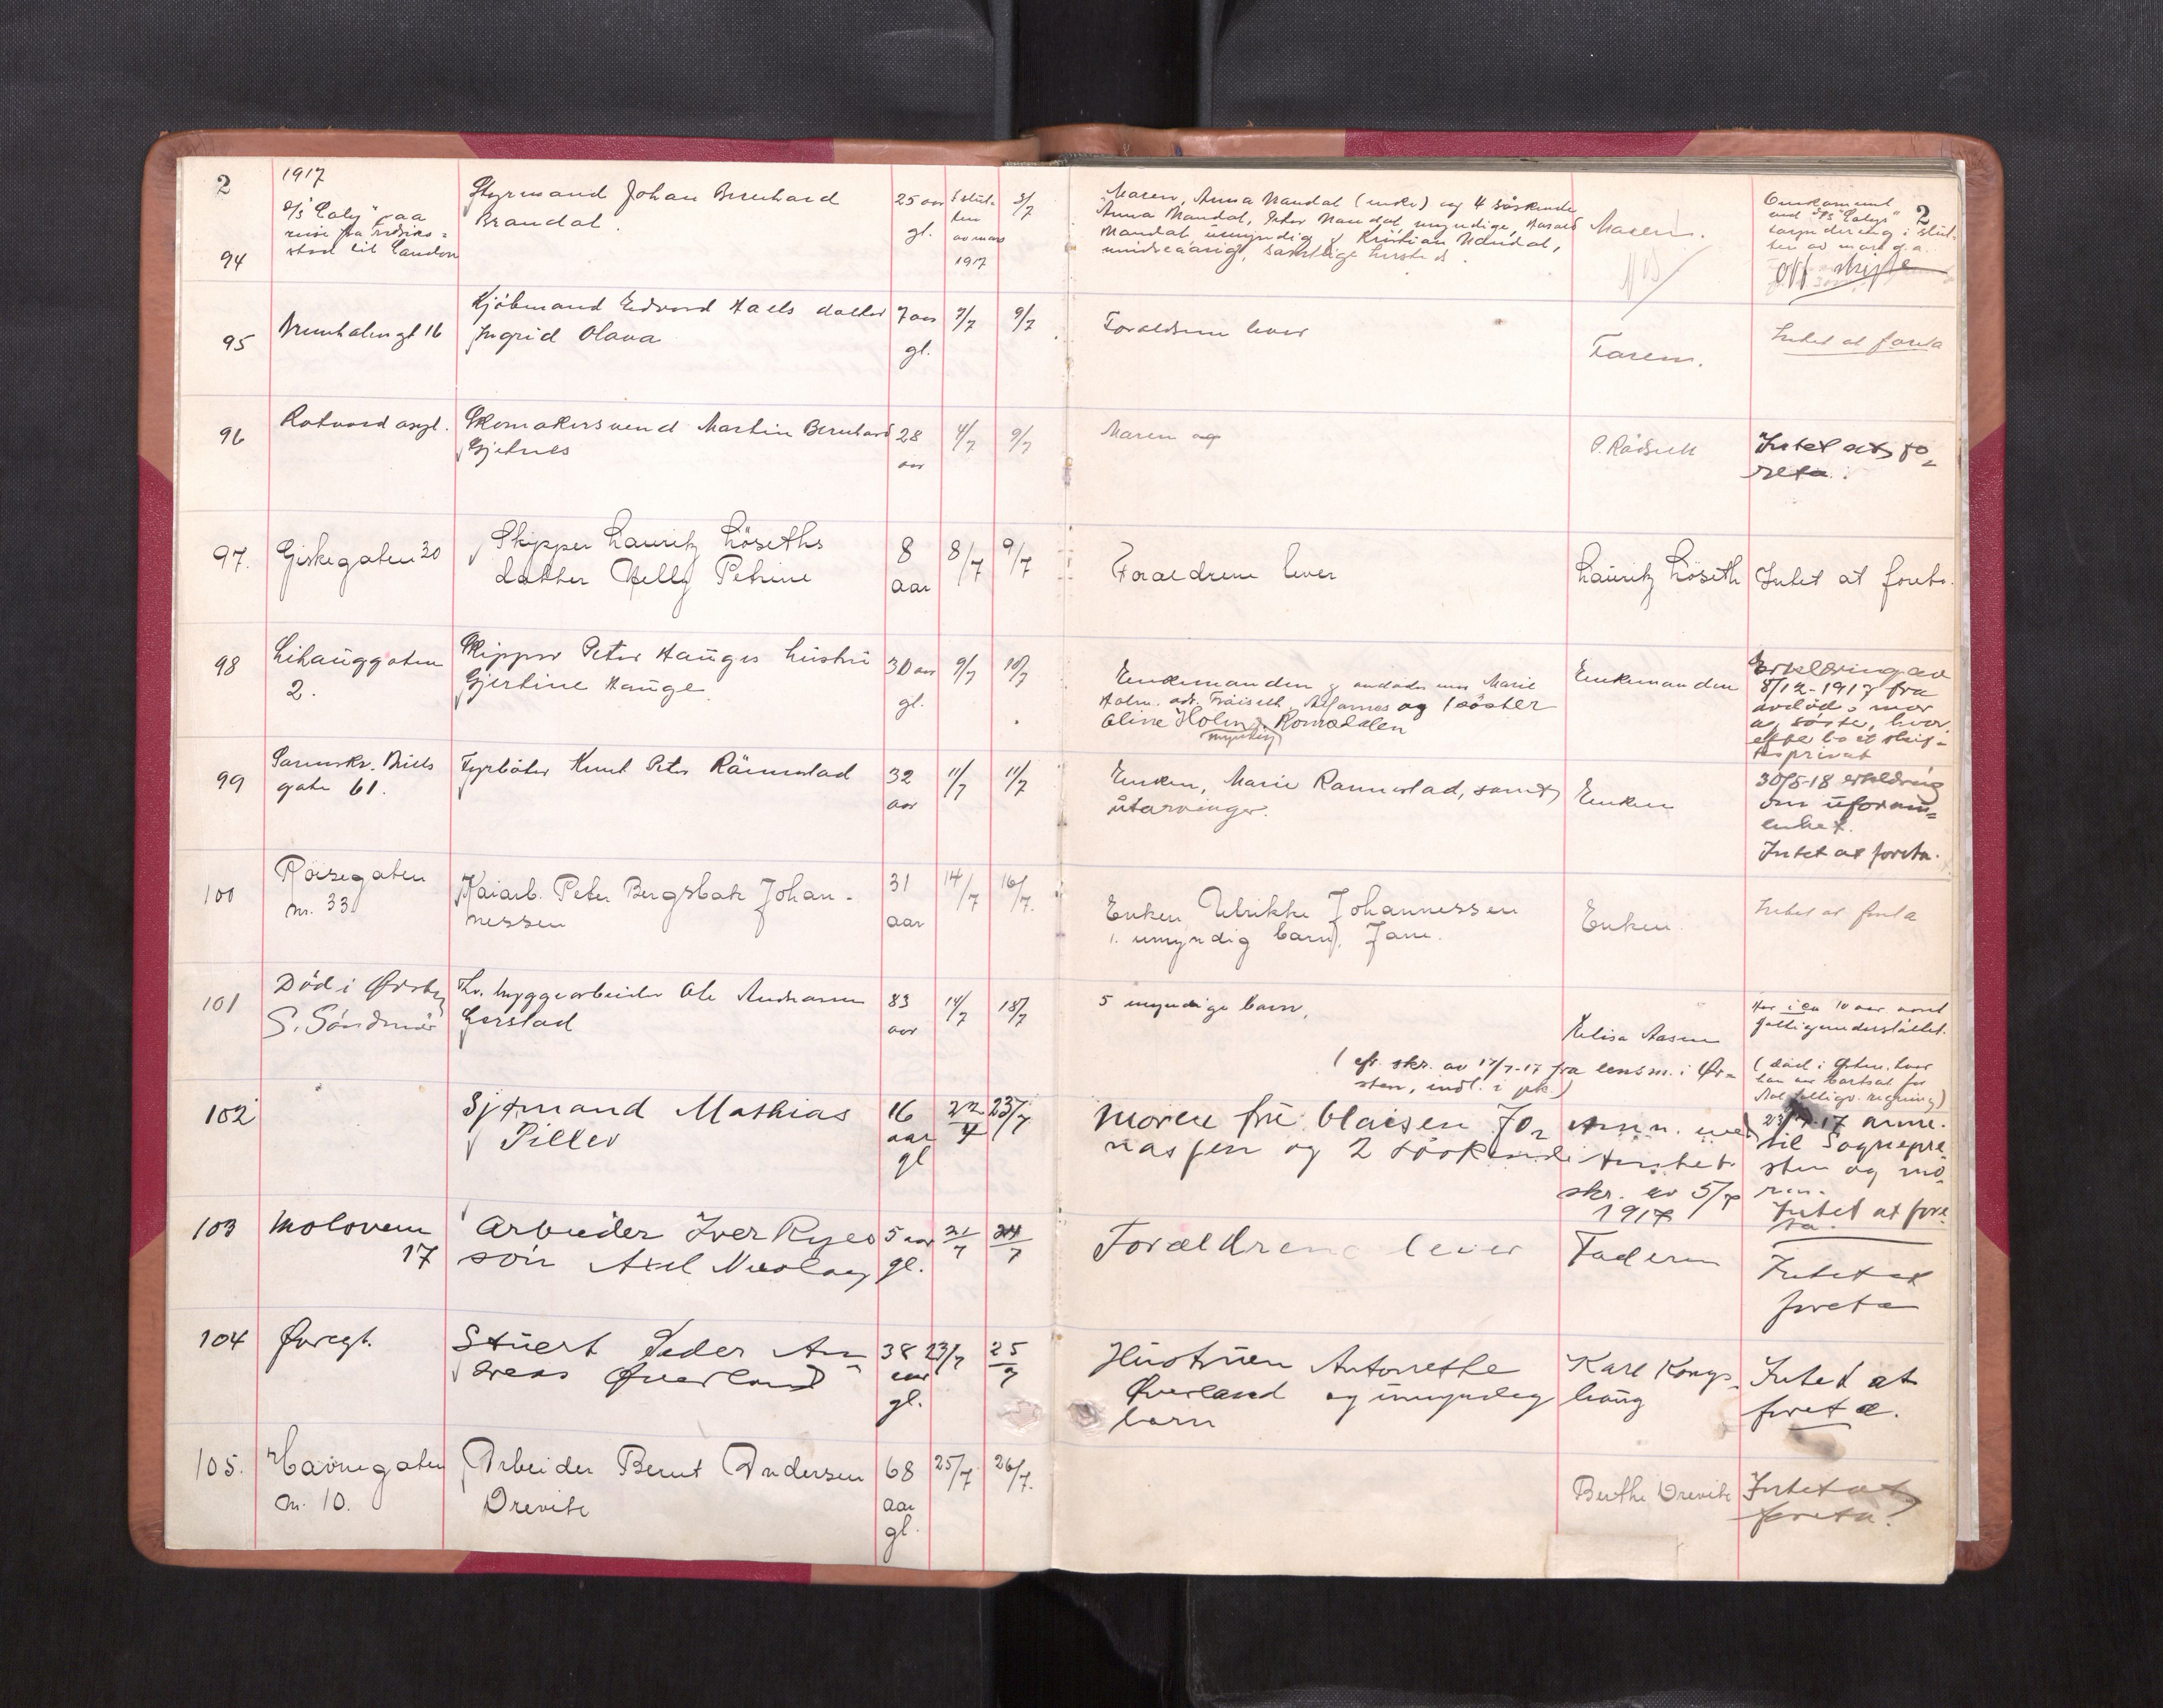 2
1917
94
Styrmand Johan Bernhard
Brandal.
25 aar
gl.
I slut-
ten
av mars
1917
3/7
Moren, Anna Mandal (enke) og 4 söskende
Anna Mandal, Peter Mandal, myndige, Harald
Mandal umyndig & Kristian Mandal,
mindreaarig, samtlige hersteds.
Moren.
Omkommet
ved D/S "Caly"
torpedering i slut-
ten av mars d.a.
Off. skifte
2
95
7 aar
gl.
Kjöbmand Edvard Haels datter
Ingrid Olava
7/7
9/7
Foraeldrene lever
Faren.
Intet at foreta
96
Rotvold asyl.
Skomakersvend Martin Bernhard
Gjetnes
28
aar
4/7
9/7
Moren og
Intet at fo-
reta.
97.
Giskegaten 20
Skipper Lauritz Löseths
datter Nelly Petrine
8
aar
8/7
9/7
Foraeldrene lever
Lauritz Löseth
Intet at foreta.
98
Lihauggaten
2.
Skipper Peter Hauges hustru
Gjertine Hauge
30 aar
gl.
9/7
10/7
Enkemanden & avdödes mor Marie
Holm, adr. Alfarnes og 1 söster
Oline Holm, Romsdalen
myndig
Enkemanden
Erklæring av
8/12-1917 fra
avdöd's mor
og söster, hvor
efter boet skif-
tes privat
99
gate 61.
Fyrböter Knut Peter Rännestad
32
aar
11/7
11/7
Enken, Marie Rannestad, samt
utarvinger.
Enken
30/5-18 erklæring
om uformu-
enhet.
Intet at foreta.
100
Röisegaten
nr. 33
Kaiarb. Peter Bergsbak Johan-
nessen
31
aar
14/7
16/7.
Enken Ulrikke Johannessen
1. umyndig barn, Jane.
Enken
Intet at foreta
101
Död i Ørsten
S. Söndmör
Fhv. bryggearbeider Ole Andreasen
Gerstad
83
aar
14/7
18/7
5 myndige barn,
Elisa Aasen
Har i ca 10 aar vaeret
fattigunderstöttet.
(eft. skr. av 17/7-17 fra lensm. i Ør-
sten, indl. i pk.)
(död i Ørsten, hvor
han var bortsat for
Aal. fattigv. regning)
102
Sjömand Mathias
Piller
16
aar
gl
22/4
23/7
Moren fru Olaisen Jo-
nassen og 2 söskende
Anm. ved
skr. av 5/7
1917
23/7-17 anme.
til Sognepre-
sten og mo-
ren.
Intet at fore-
ta.
103
Moloveien
17
Arbeider Iver Ryes
sön Axel Nicolay
5 aar
gl.
21/7
24/7
Foraeldrene lever
Faderen
Intet at
foreta
104
Øvregt.
Stuert Peder An-
dreas Øverland
38
aar
gl.
23/7
25/7
Hustruen Antonette
Øverland og umyndig
barn
Karl Kongs-
haug
Intet at
foreta.
105.
Havnegaten
nr. 10.
Arbeider Bernt Andersen
Drevik
68
aar
gl.
25/7
26/7.
Berthe Drevik
Intet at
foreta.